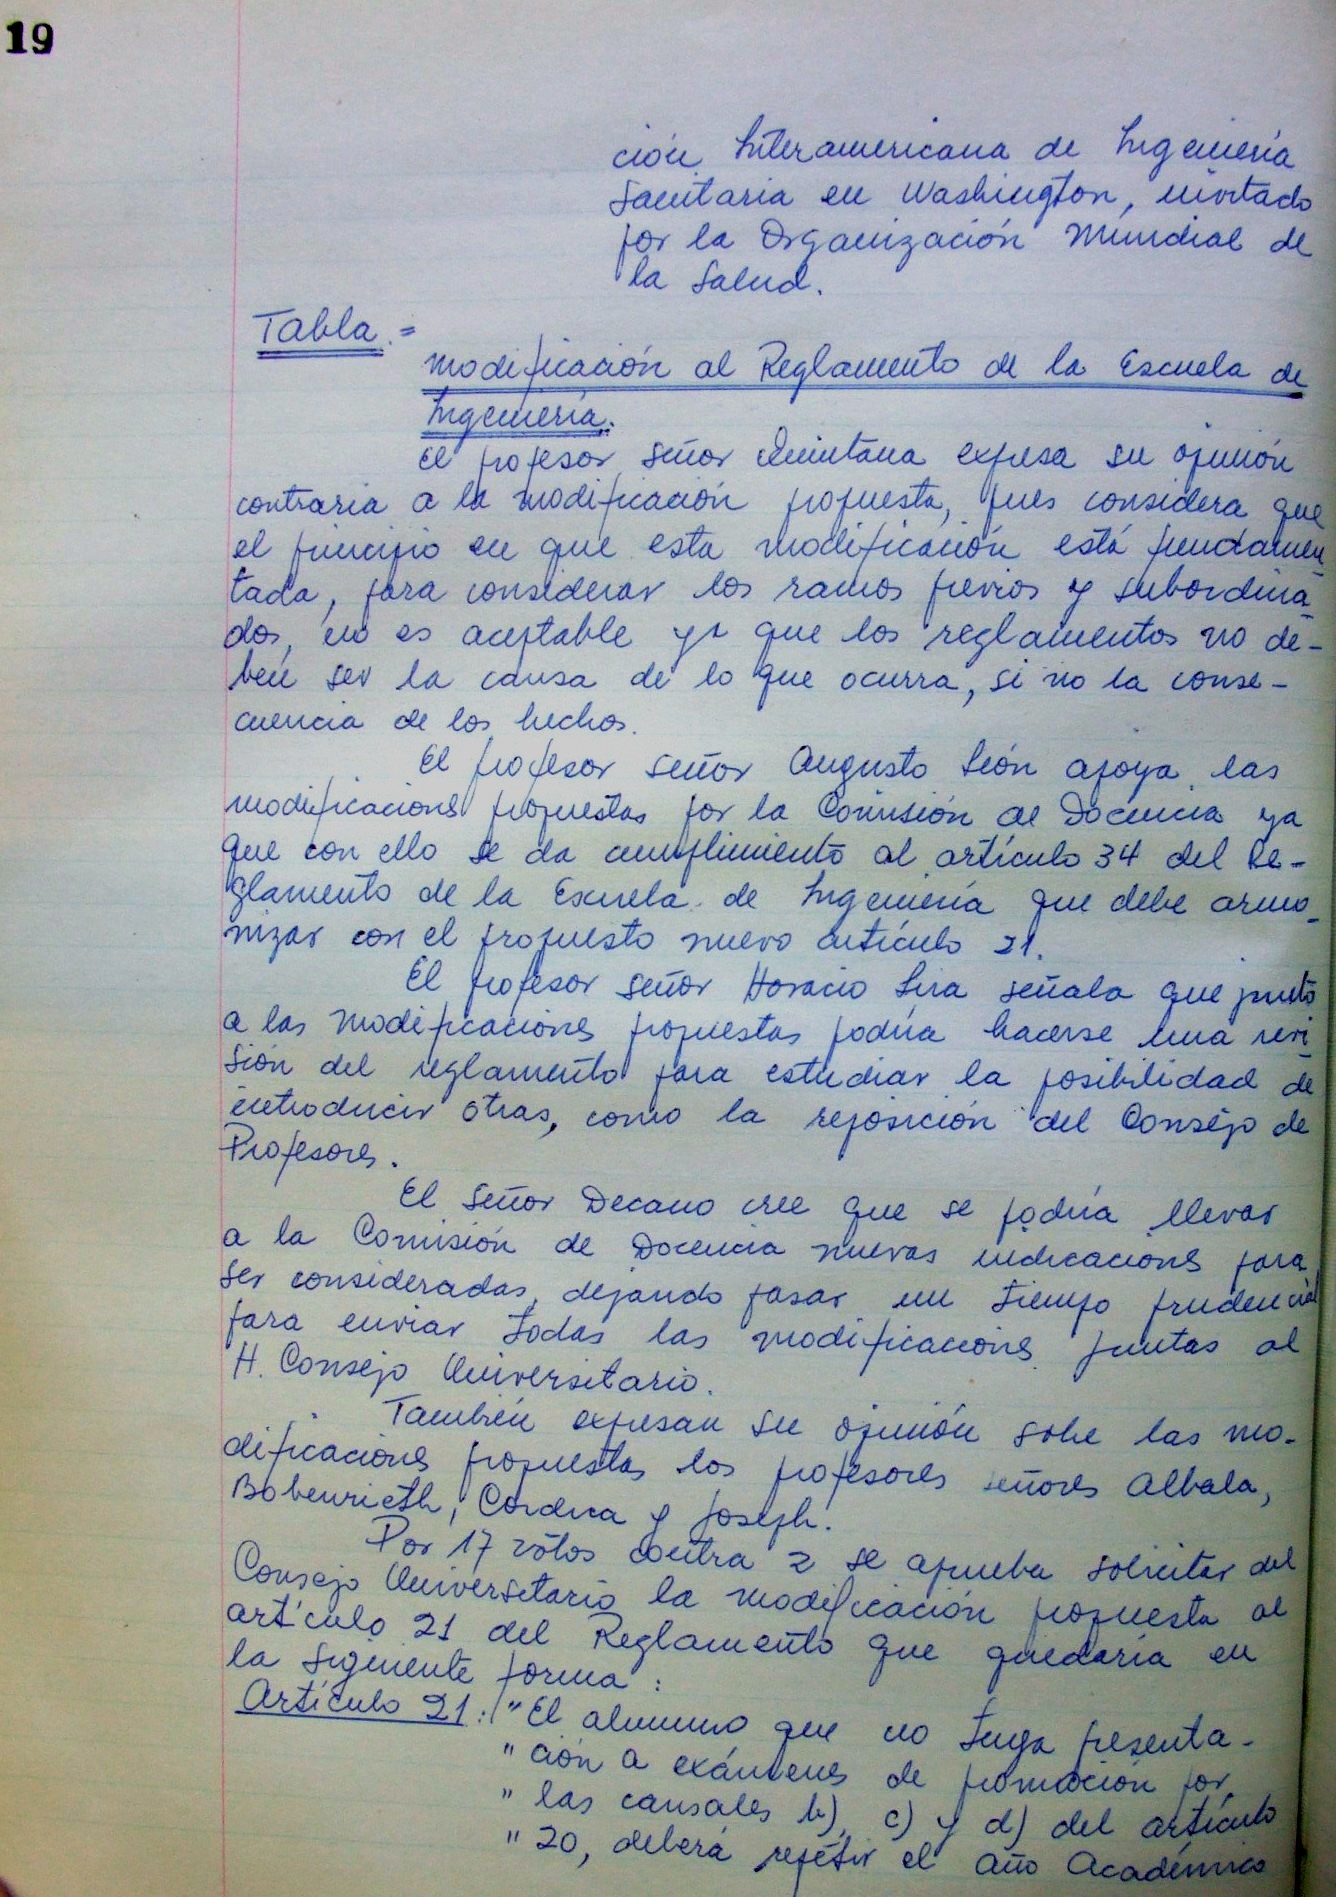 19
ción Interamericana de Ingeniería
Sanitaria en Washington, invitado
por la Organización Mundial de
la Salud.
Tabla.=
Modificación al Reglamento de la Escuela de
Ingeniería.
El profesor señor Quintana expresa su opinión
contraria a la modificación propuesta, pues considera que
el principio en que esta modificación está fundamen
tada, para considerar los ramos previos y subordina
dos, no es aceptable ya que los reglamentos no de-
ben ser la causa de lo que ocurra, si no la conse-
cuencia de los hechos.
El profesor señor Augusto León apoya las
modificaciones propuestas por la Comisión de Docencia ya
que con ello se da cumplimiento al artículo 34 del Re-
glamento de la Escuela de Ingeniería que debe armo-
nizar con el propuesto nuevo artículo 21.
El profesor señor Horacio Lira señala que junto
a las modificaciones propuestas podría hacerse una revi
sión del reglamento para estudiar la posibilidad de
introducir otras, como la reposición del Consejo de
Profesores.
El Señor Decano cree que se podría llevar
a la Comisión de Docencia nuevas indicaciones para
ser consideradas, dejando pasar un tiempo prudencial
para enviar todas las modificaciones juntas al
H. Consejo Universitario.
También expresan su opinión sobre las mo-
dificaciones propuestas los profesores señores Albala,
Bobenrieth, Cordua y Joseph.
Por 17 votos contra 2 se aprueba solicitar del
Consejo Universitario la modificación propuesta al
artículo 21 del Reglamento que quedaría en
la siguiente forma:
Artículo 21: "El alumno que no tenga presenta-
" ción a exámenes de promoción por
" las causales b), c) y d) del artículo
" 20, deberá repetir el Año Académico